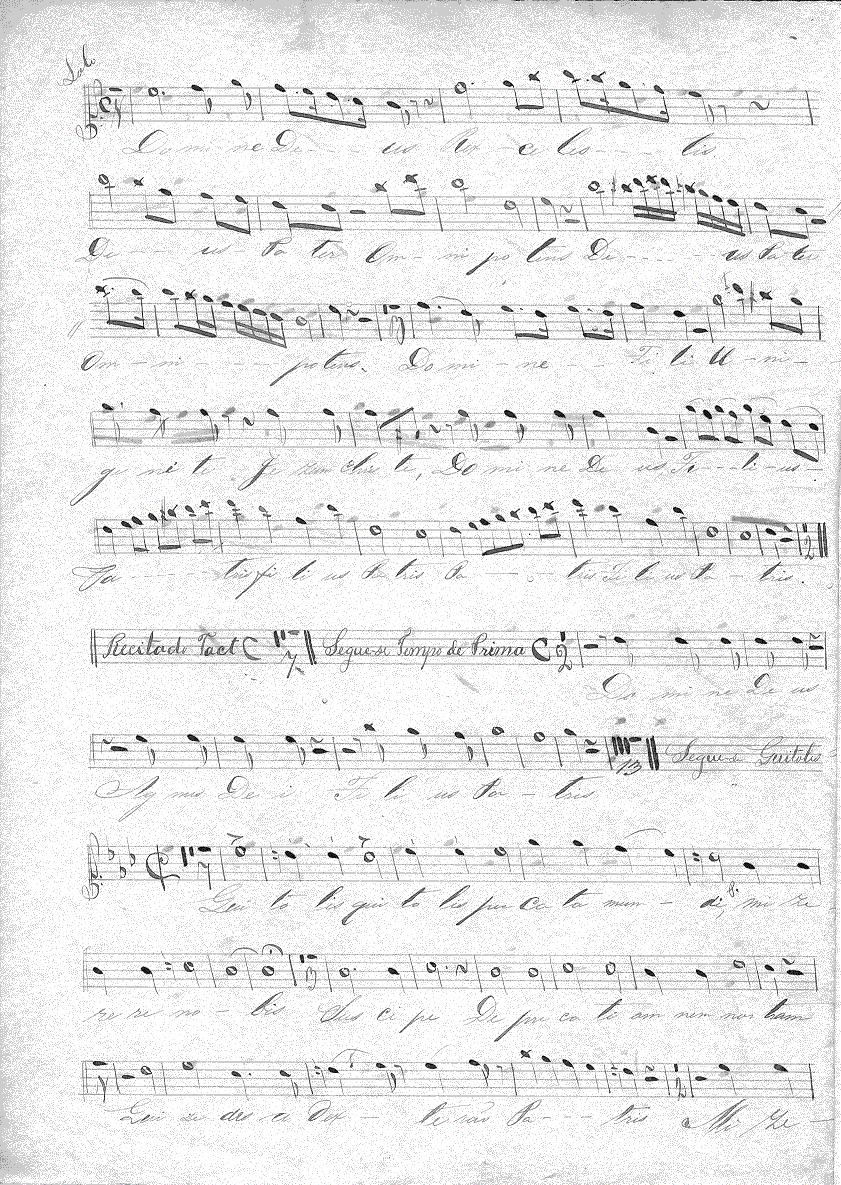 Solo
Domine De - - - us Rex - ce les - - - - tis
De - - - us - Pa ter Om - - ni po tens De - - - - - us Pa ter
Om - - ni - - - - potens. Do mi - ne - - Fi li U - nis -
ge ni te Je zum chris te, Do mi ne De us, Fi - - - li - us -
Pa - - - - - tris fi li us Pa tris Pa - - - - tris Fi li us Pa - tris.
Recitado Tact C 7 Segue-se Tempo de Prima C 2
Do mi ne De us
Ag nus De i Fi li us Pa - tris 13 Segue-se Guitolis
7
Gui to lis qui to lis pec ca ta mun - di, mi ze -
re re no - bis Sus ci pe De pre ca ti om nem nos tram
Qui se des a dex - te ram Pa - - - tris Mi ze -